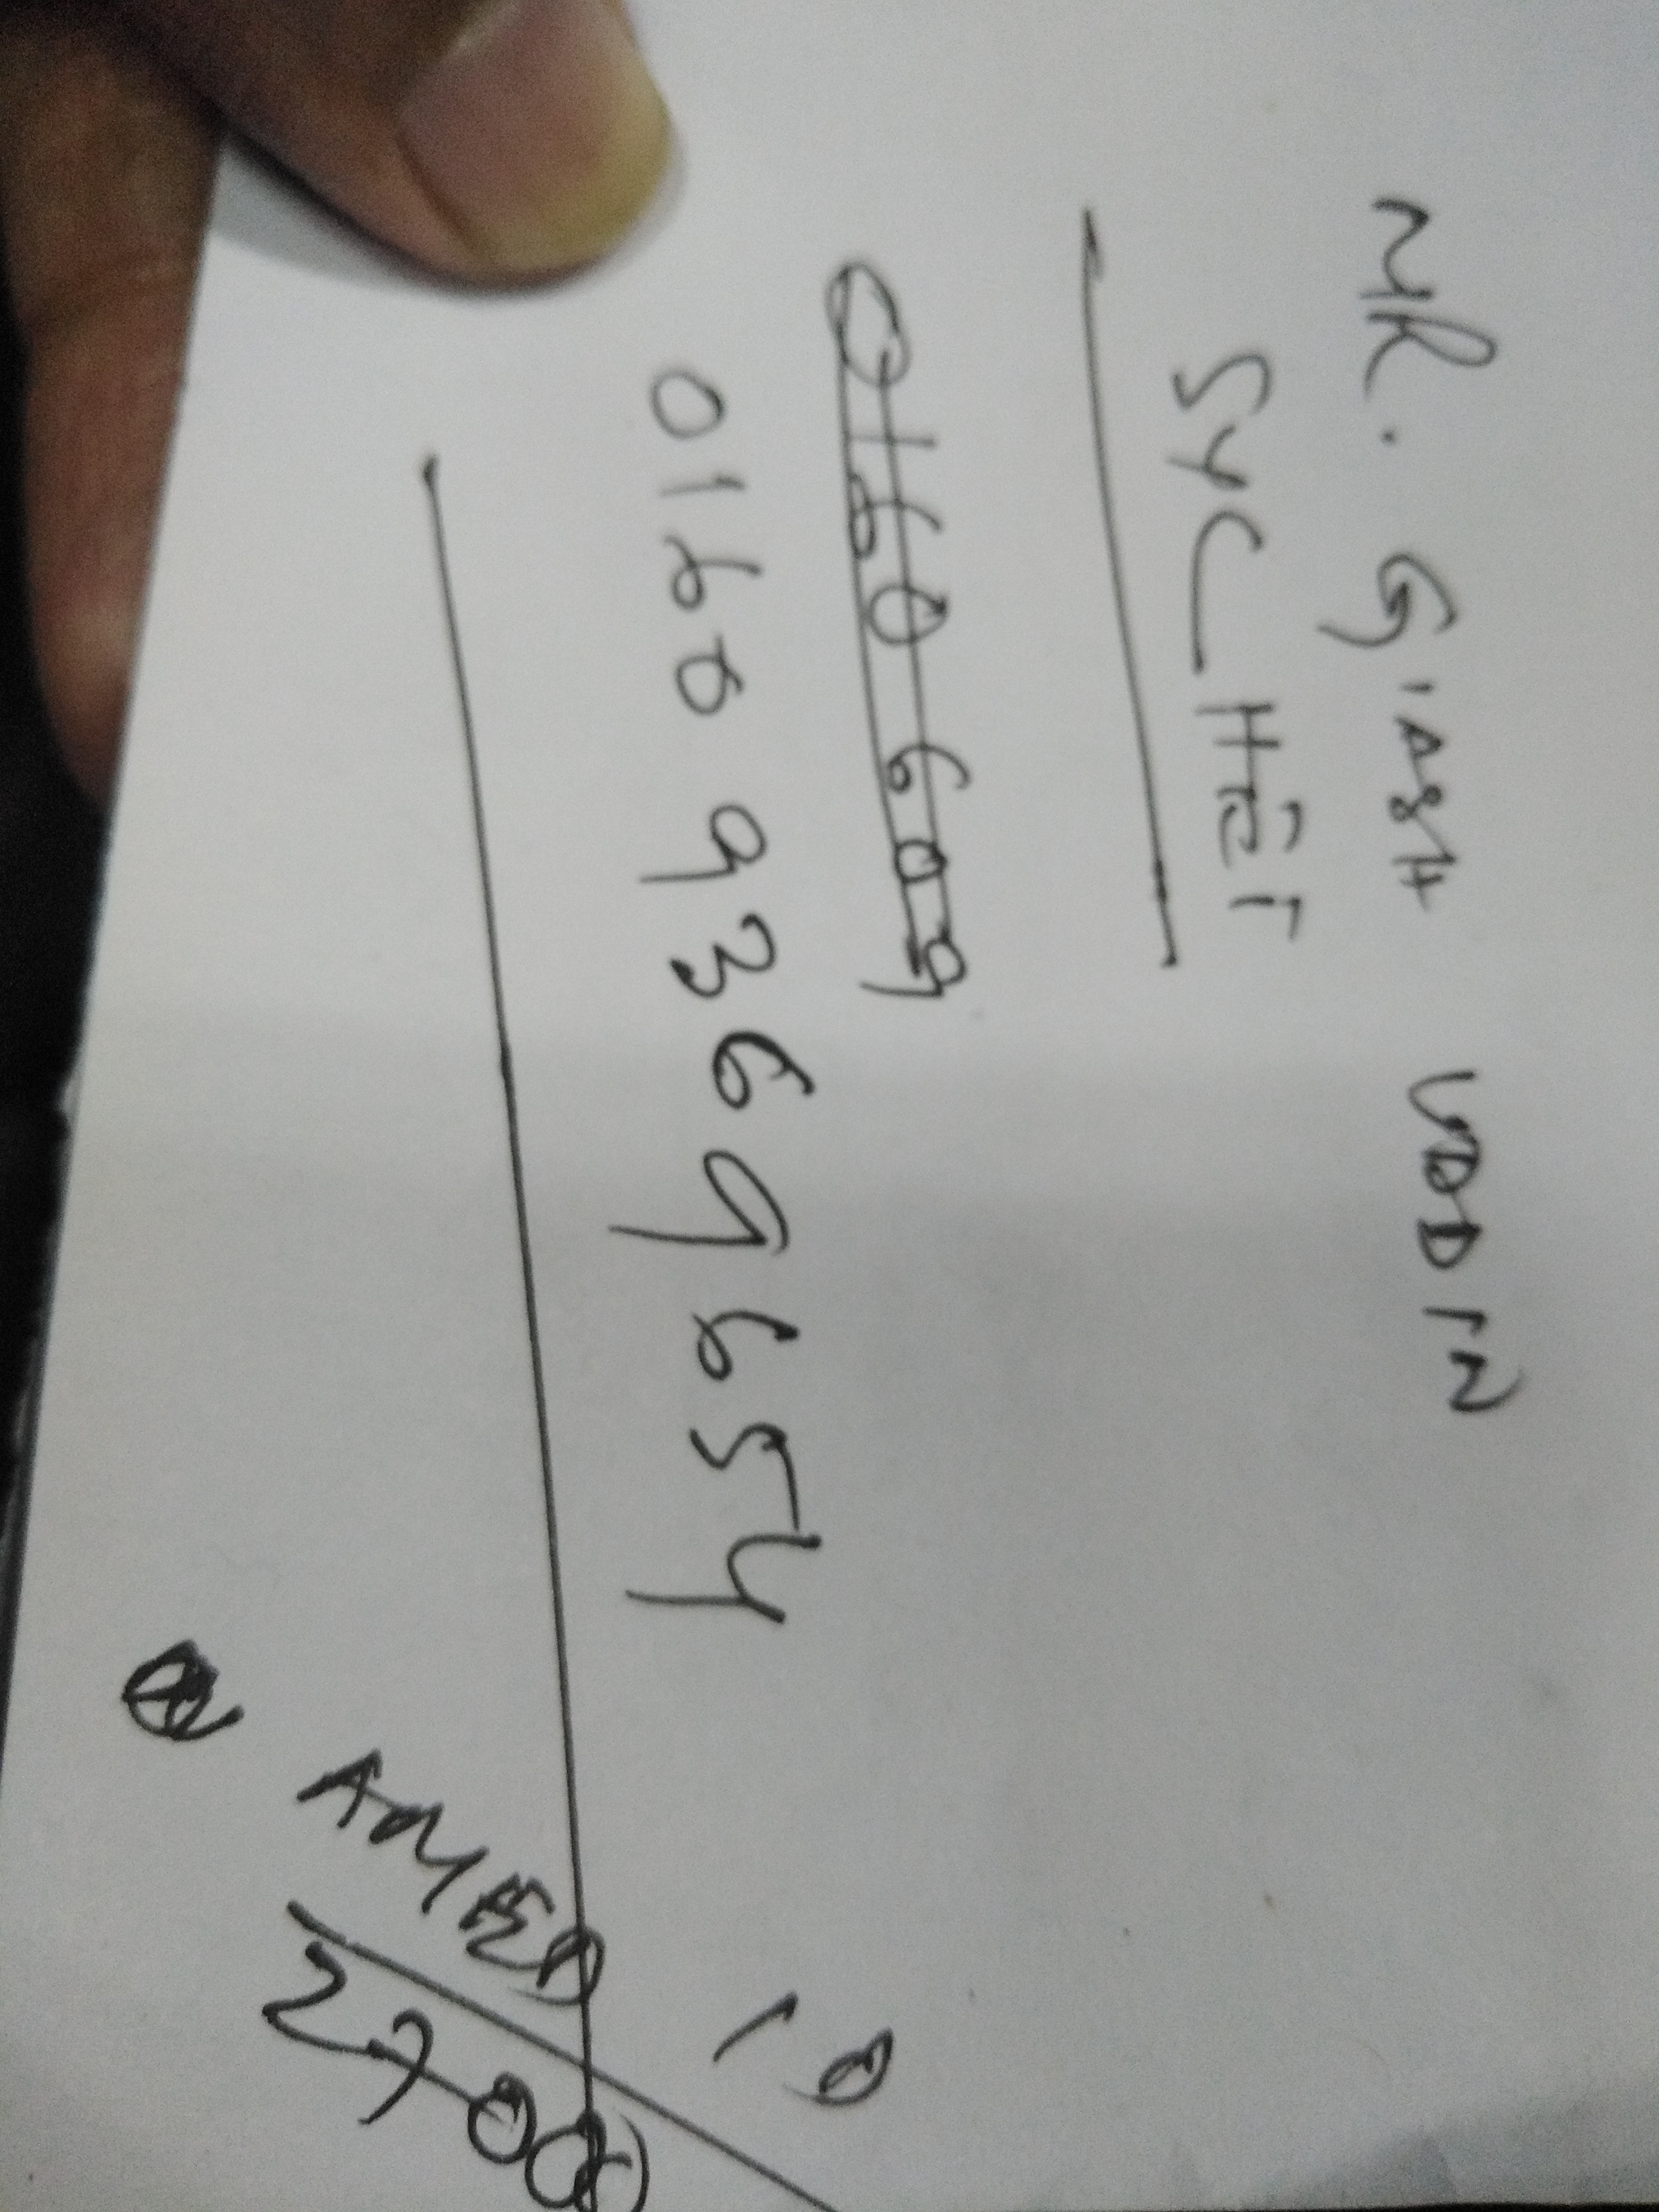 MR. GIASH UDDIN
SYLHET
0160 609
0160 9369654
ID
AMED
27000